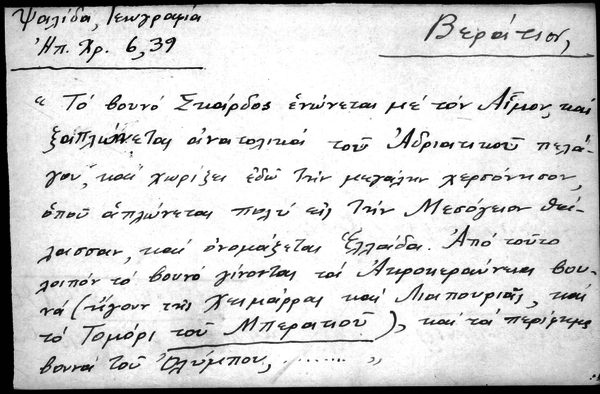 Ψαλίδα, Γεωγραφία
Ἠπ. Χρ. 6, 39
Βεράτιον,
" Τό βουνό Σκάρδος ἑνώνεται μέ τόν Αἷμον, καί
ξαπλώνεται ἀνατολικά τοῦ Ἀδριατικοῦ πελά-
γου, καί χωρίζει ἐδῶ τήν μεγάλην χερσόνησον,
ὁποῦ ἁπλώνεται πολύ εἰς τήν Μεσόγειον θά-
λασσαν, καί ὀνομάζεται Ἑλλάδα. Ἀπό τοῦτο
λοιπόν τό βουνό γίνονται τά Ἀκροκεραύνεια βου-
νά (ἤγουν τῆς Χειμάρρας καί Λιαπουριᾶς, καί
τό Τομόρι τοῦ Μπερατιοῦ), καί τά περίφημα
βουνά τοῦ Ὀλύμπου, ........ "